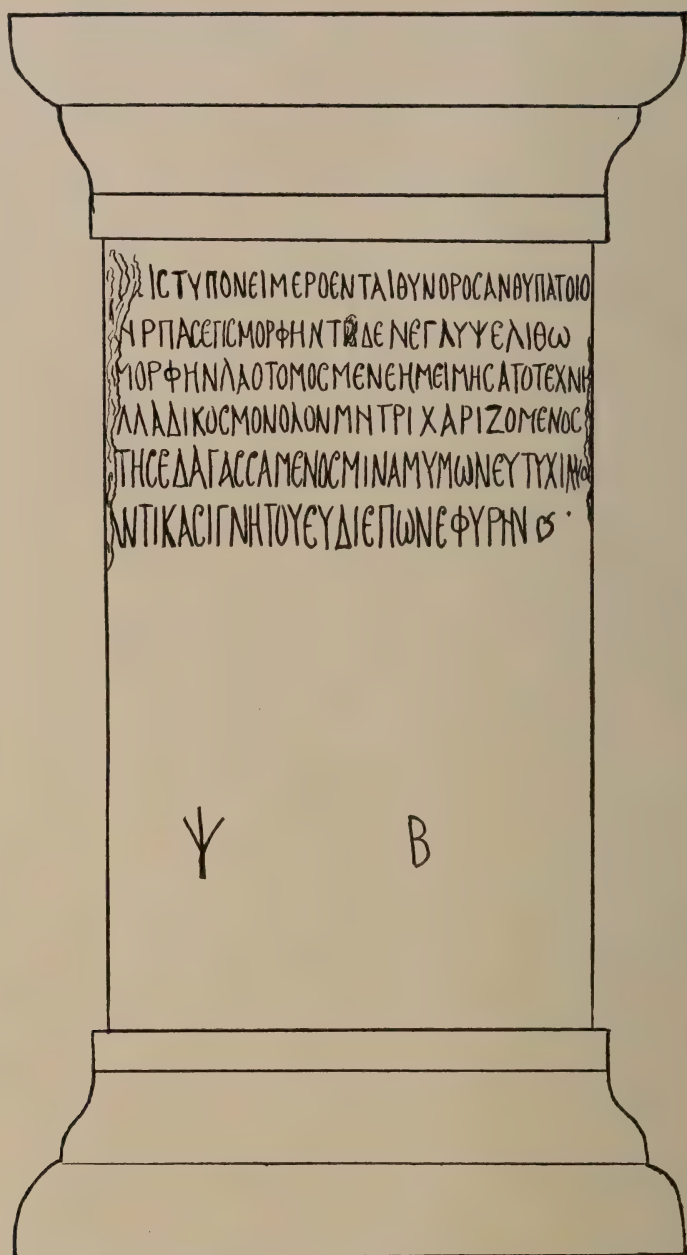 ΙϹΤΥΠΟΝΕΙΜΕΡΟΕΝΤΑΙΘΥΝΟΡΟϹΑΝΘΥΠΑΤΟΙΟ
ΗΡΠΑϹΕΤΙϹΜΟΡΦΗΝΤΩΔΕΝΕΓΛΥΨΕΛΙΘΩ
ΜΟΡΦΗΝΛΑΟΤΟΜΟϹΜΕΝΕΗΜΕΙΜΗϹΑΤΟΤΕΧΝΗ
ΛΛΑΔΙΚΟϹΜΟΝΟΛΟΝΜΗΤΡΙΧΑΡΙΖΟΜΕΝΟϹ
ΤΗϹΕΔΑΓΑϹϹΑΜΕΝΟϹΜΙΝΑΜΥΜΩΝΕΥΤΥΧΙΑΝΟ
ΑΝΤΙΚΑϹΙΓΝΗΤΟΥΕΥΔΙΕΠΩΝΕΦΥΡΗΝ
Ψ Β